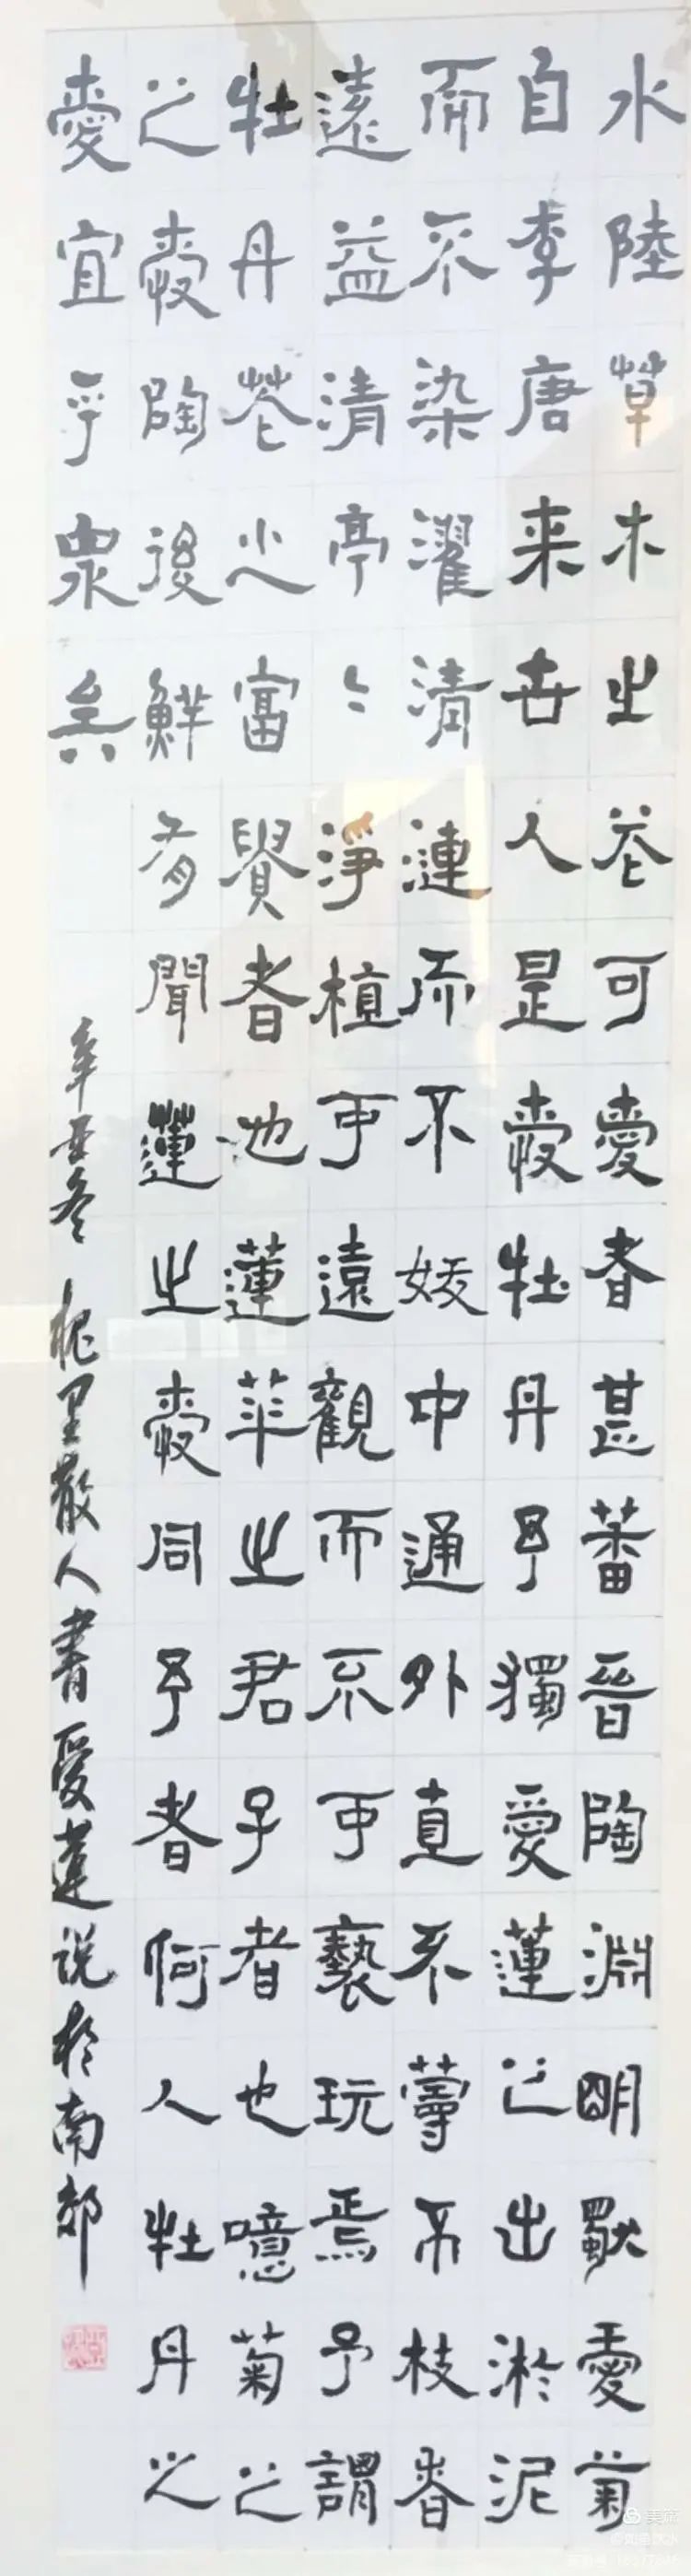 水陸草木之花可愛者甚蕃晉陶淵明獨愛菊
自李唐来世人是愛牡丹予獨愛蓮之出淤泥
而不染濯清漣而不妖中通外直不蔓不枝香
遠益清亭〻淨植可遠觀而不可褻玩焉予謂
牡丹花之富貴者也蓮華之君子者也噫菊之
之愛陶後鮮有聞蓮之愛同予者何人牡丹之
愛宜乎眾矣
辛丑冬 槐里散人書愛蓮说於南郊
美篇